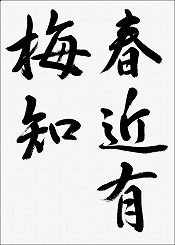 春近有
梅知